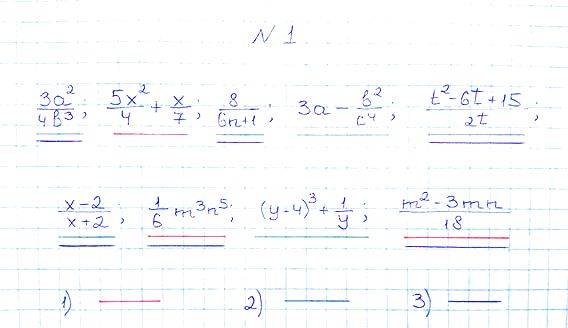 N 1
3a²/4b³; 5x²/4 + x/7; 8/6n+1; 3a - b²/c⁴; t²-6t+15/2t;
x-2/x+2; 1/6 m³n⁵; (y-4)³ + 1/y; m²-3mn/18
1) 2) 3)